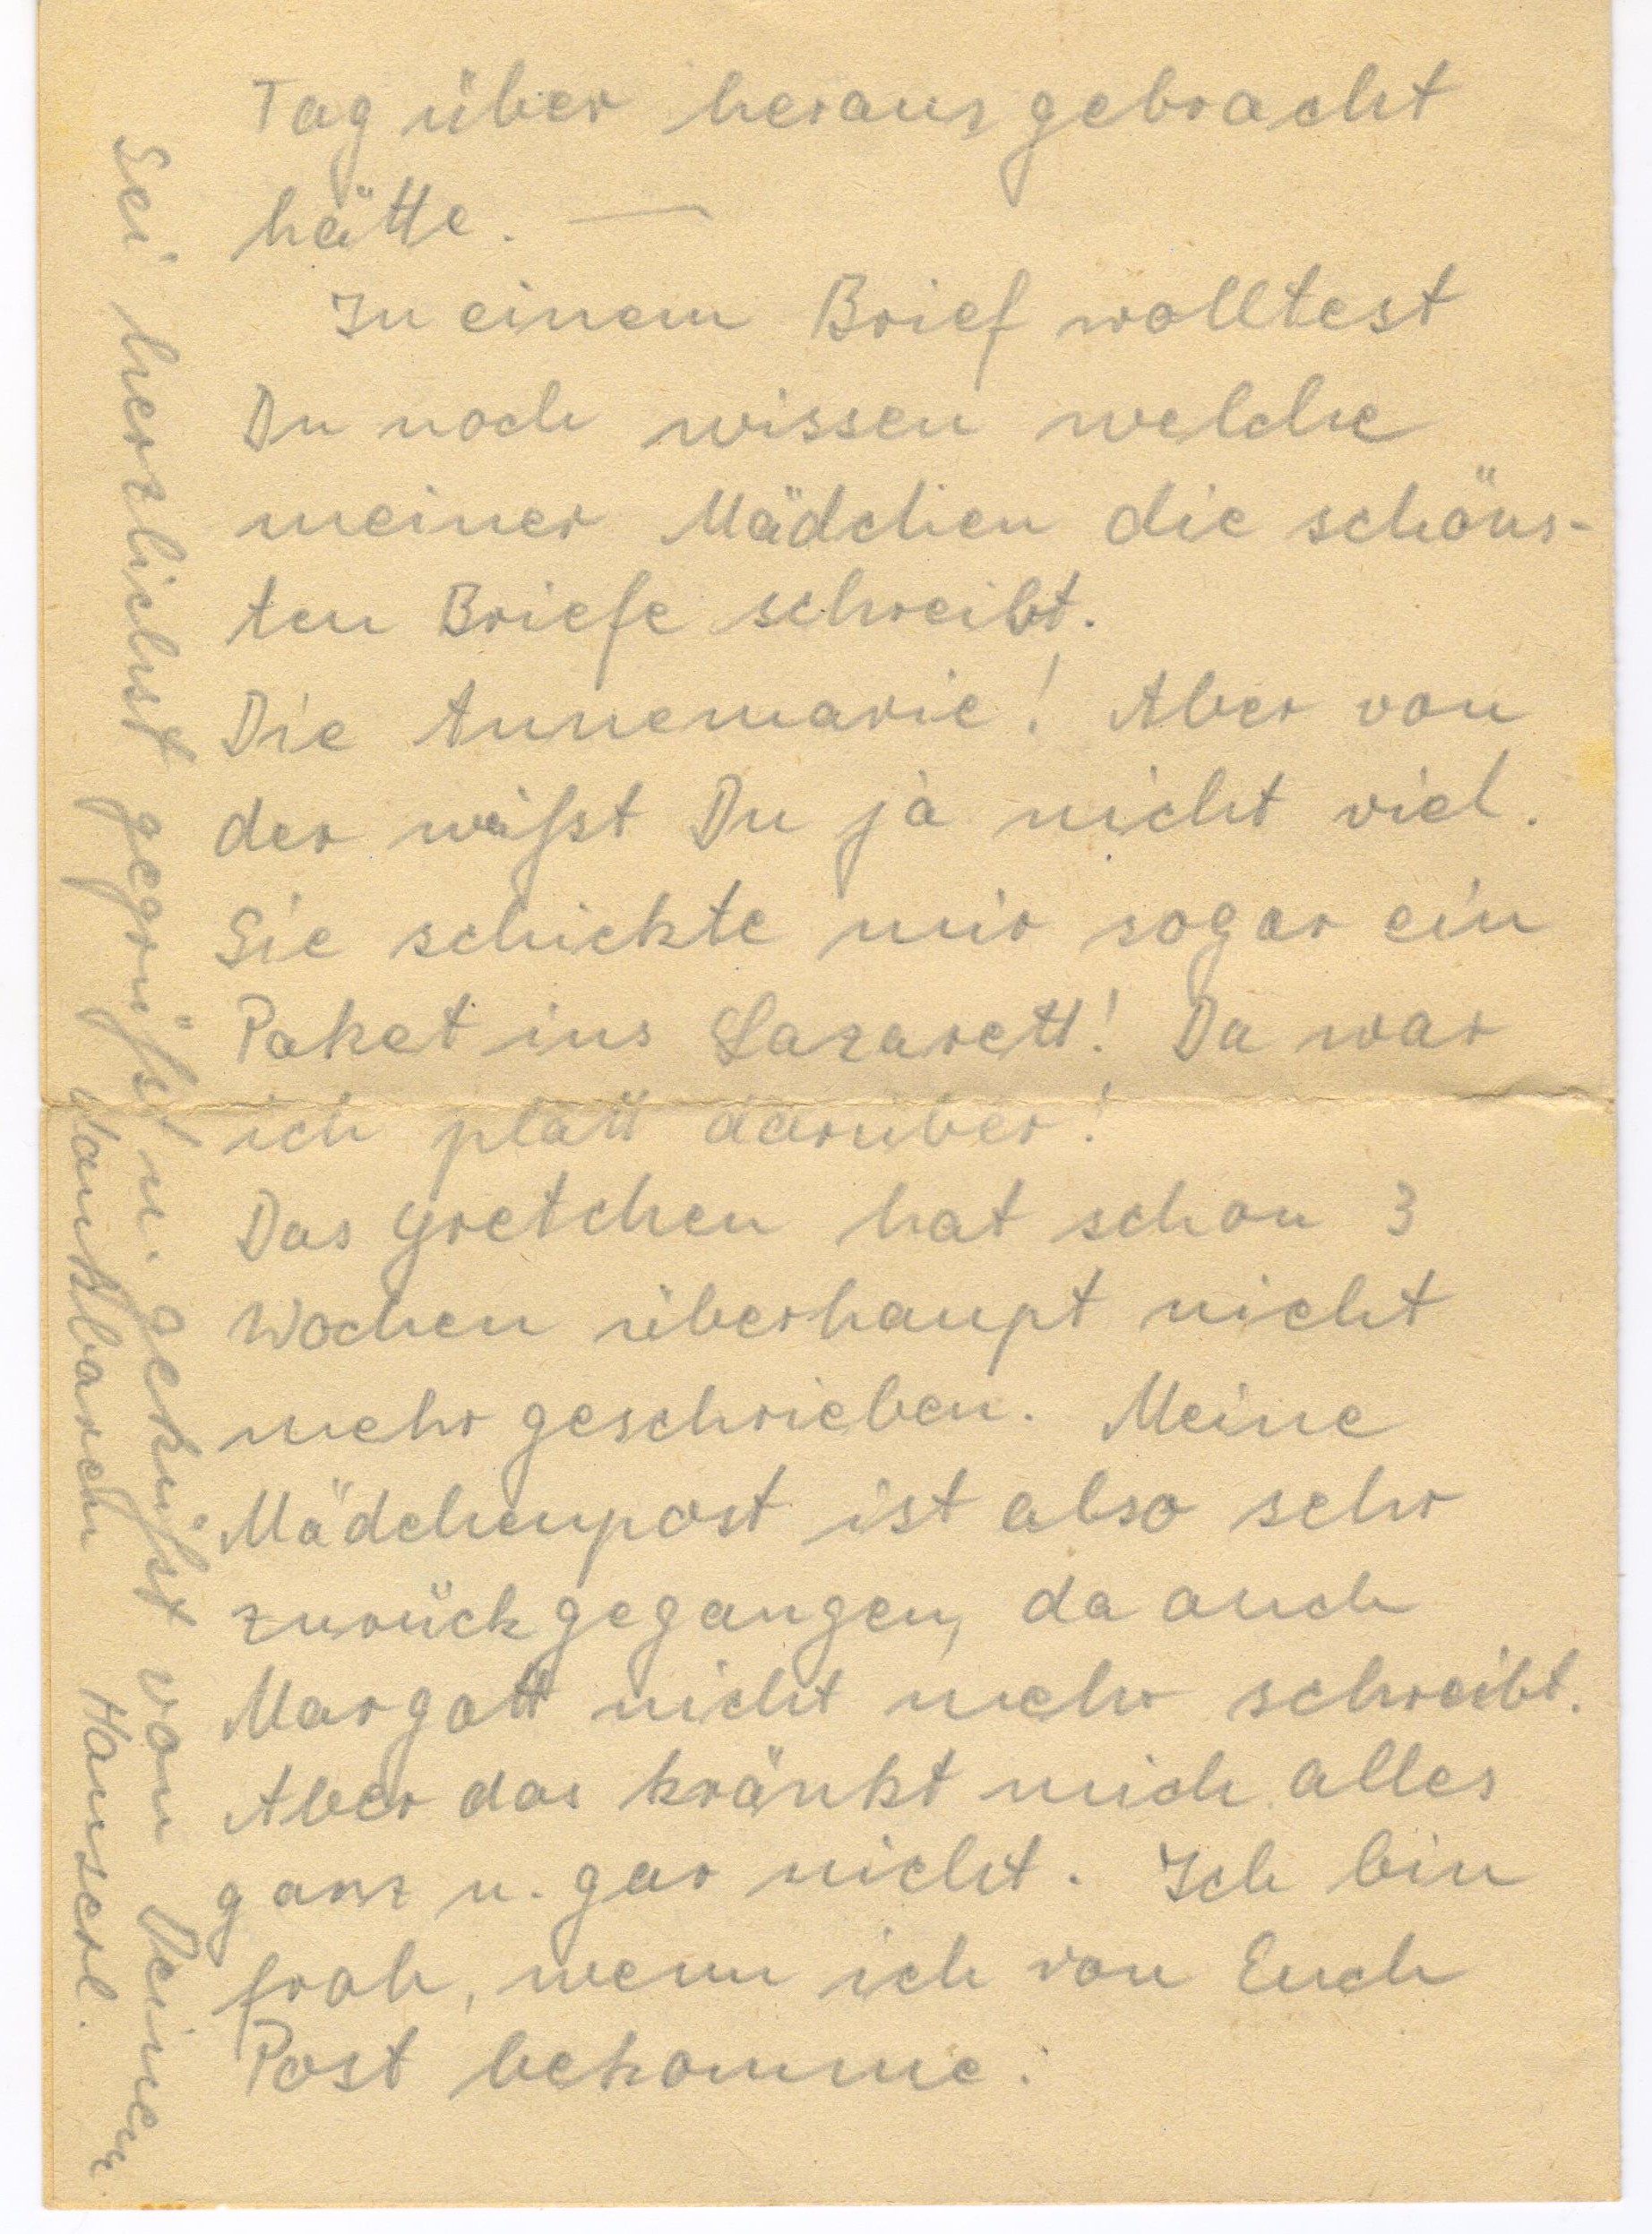 Tag über heraus gebracht
hätte. —
In einem Brief wolltest
Du noch wissen welche
meiner Mädchen die schöns-
ten Briefe schreibt.
Die Annemarie! Aber von
der weißt Du ja nicht viel.
Sie schickte mir sogar ein
Paket ins Lazarett! Da war
ich platt darüber!
Das Gretchen hat schon 3
Wochen überhaupt nicht
mehr geschrieben. Meine
Mädchenpost ist also sehr
zurückgegangen, da auch
Margott nicht mehr schreibt.
Aber das kränkt mich alles
ganz u. gar nicht. Ich bin
froh, wenn ich von Euch
Post bekomme.
Sei herzlichst gegrüßt u. geküßt von Deinem
dankbaren Hanserl.